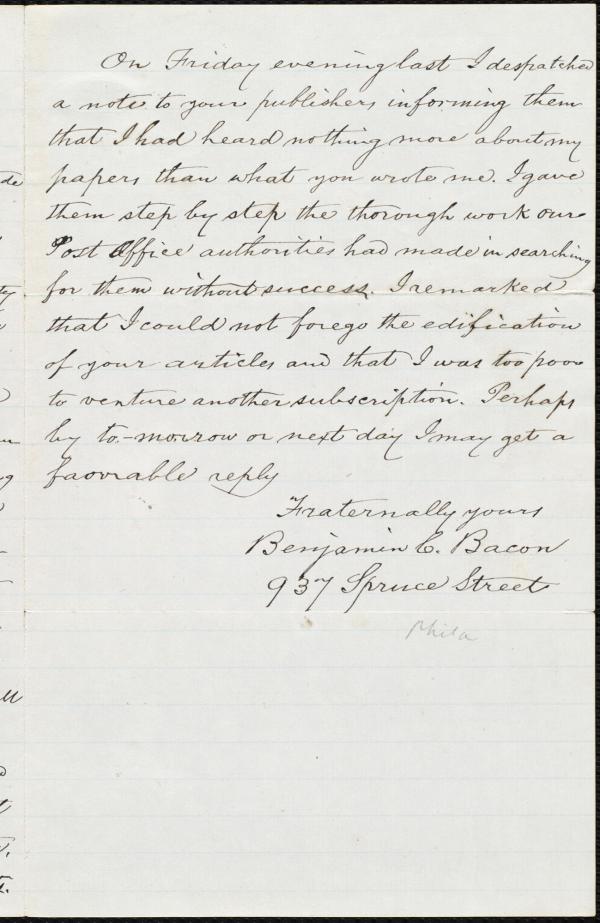 On Friday evening last I despatched
a note to your publishers informing them
that I had heard nothing more about my
papers than what you wrote me. I gave
them step by step the thorough work our
Post Office authorities had made in searching
for them without success. I remarked
that I could not forego the edification
of your articles and that I was too poor
to venture another subscription. Perhaps
by to-morrow or next day I may get a
faovrable reply
Fraternally yours
Benjamin C. Bacon
937 Spruce Street
Phila